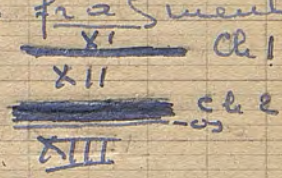 fragment
XI
Ch 1
XII
Ch 2
XIII